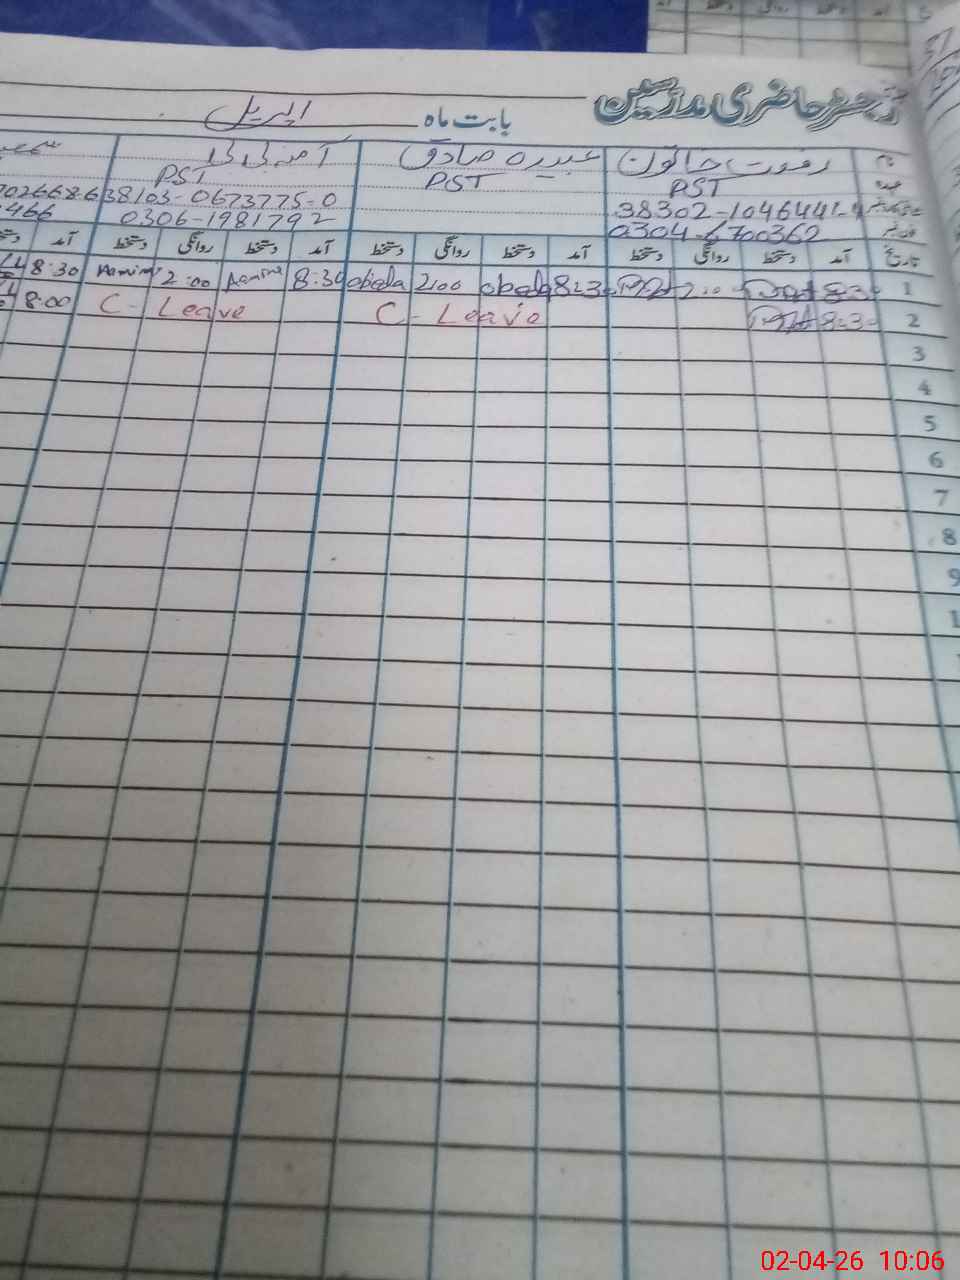 رجسٹر حاضری مدرسین
بابت ماہ اپریل
نام رفعت خاتون عبیرہ صادق آمنہ بی بی
عہدہ PST PST PST
38302-1046441-4 38103-0673775-0
فون نمبر 0304-6700362 0306-1981792 466
تاریخ آمد دستخط روانگی دستخط آمد دستخط روانگی دستخط آمد دستخط روانگی دستخط آمد
1 8:30 2:00 8:30 obeda 2:00 obeda 8:30 Aamina 2:00 Aamina 8:30
2 8:30 C - Leave C - Leave 8:00
3
4
5
6
7
8
9
02-04-26 10:06